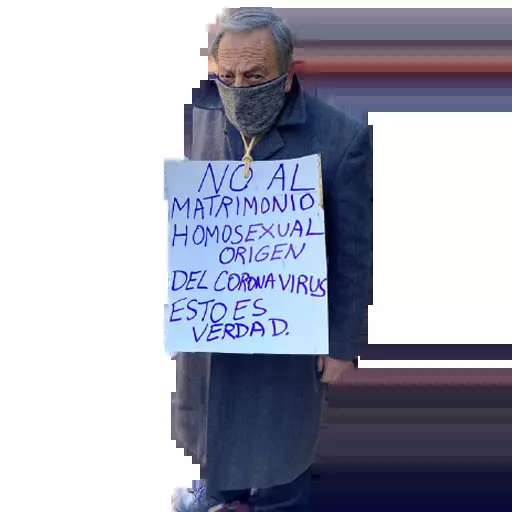 NO AL
MATRIMONIO
HOMOSEXUAL
ORIGEN
DEL CORONAVIRUS
ESTO ES
VERDAD.